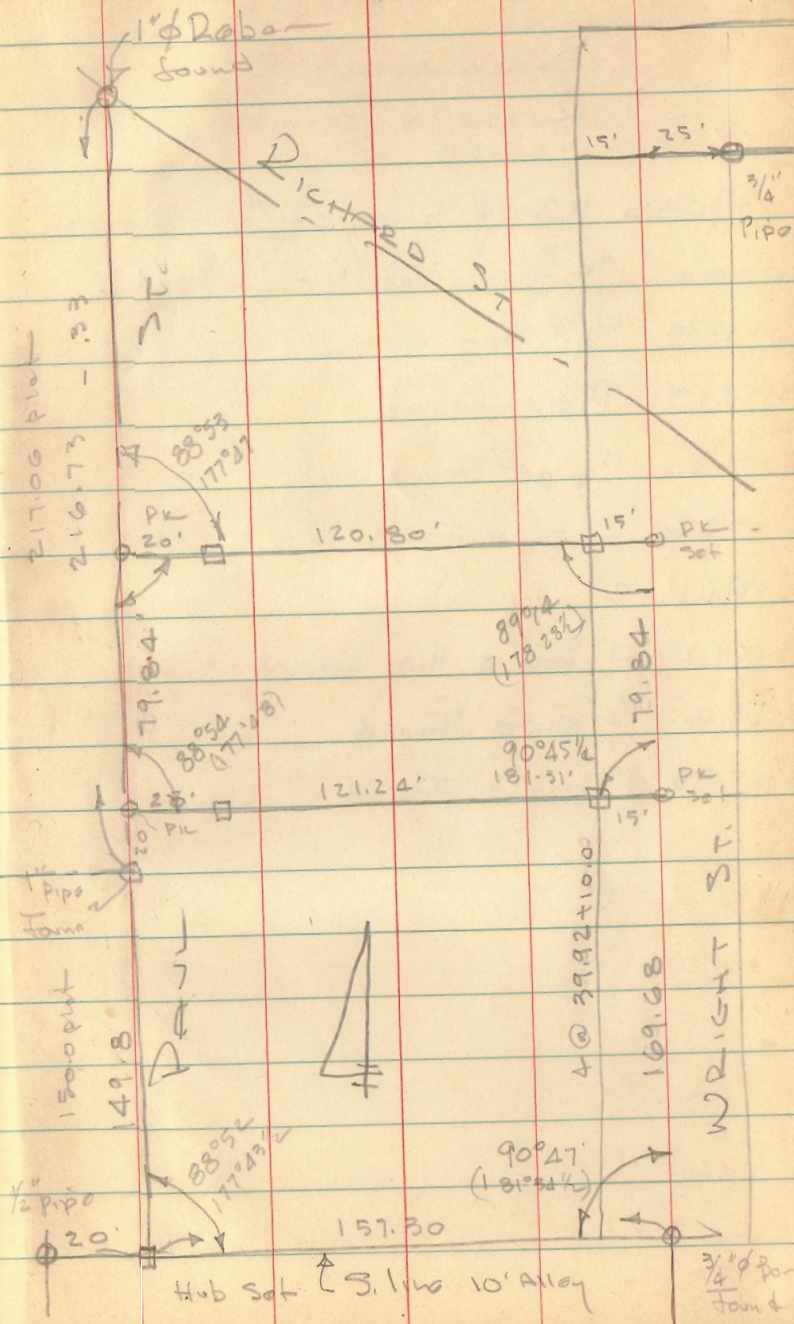 1"⌀ Rebar
found
15'
25'
3/4"
Pipe
RICHARD ST.
ST.
217.06 plat
216.73 - .33
88°53
177°47
PK
20'
120.80'
15'
PK
Set
79.84'
89°14
(178 28½)
79.84
88°54
(177°48)
90°45¼
181-31'
121.24'
PK
20
PK
Set
15'
Pipe
found
150.0 plat
149.8
PAUL
4 @ 39.92+10.0
169.68
WRIGHT ST.
88°52
177°43½
90°47'
(181°34½)
1/2" pipe
20'
157.30
Hub Set
S. line 10' Alley
3/4"⌀ Bar
found